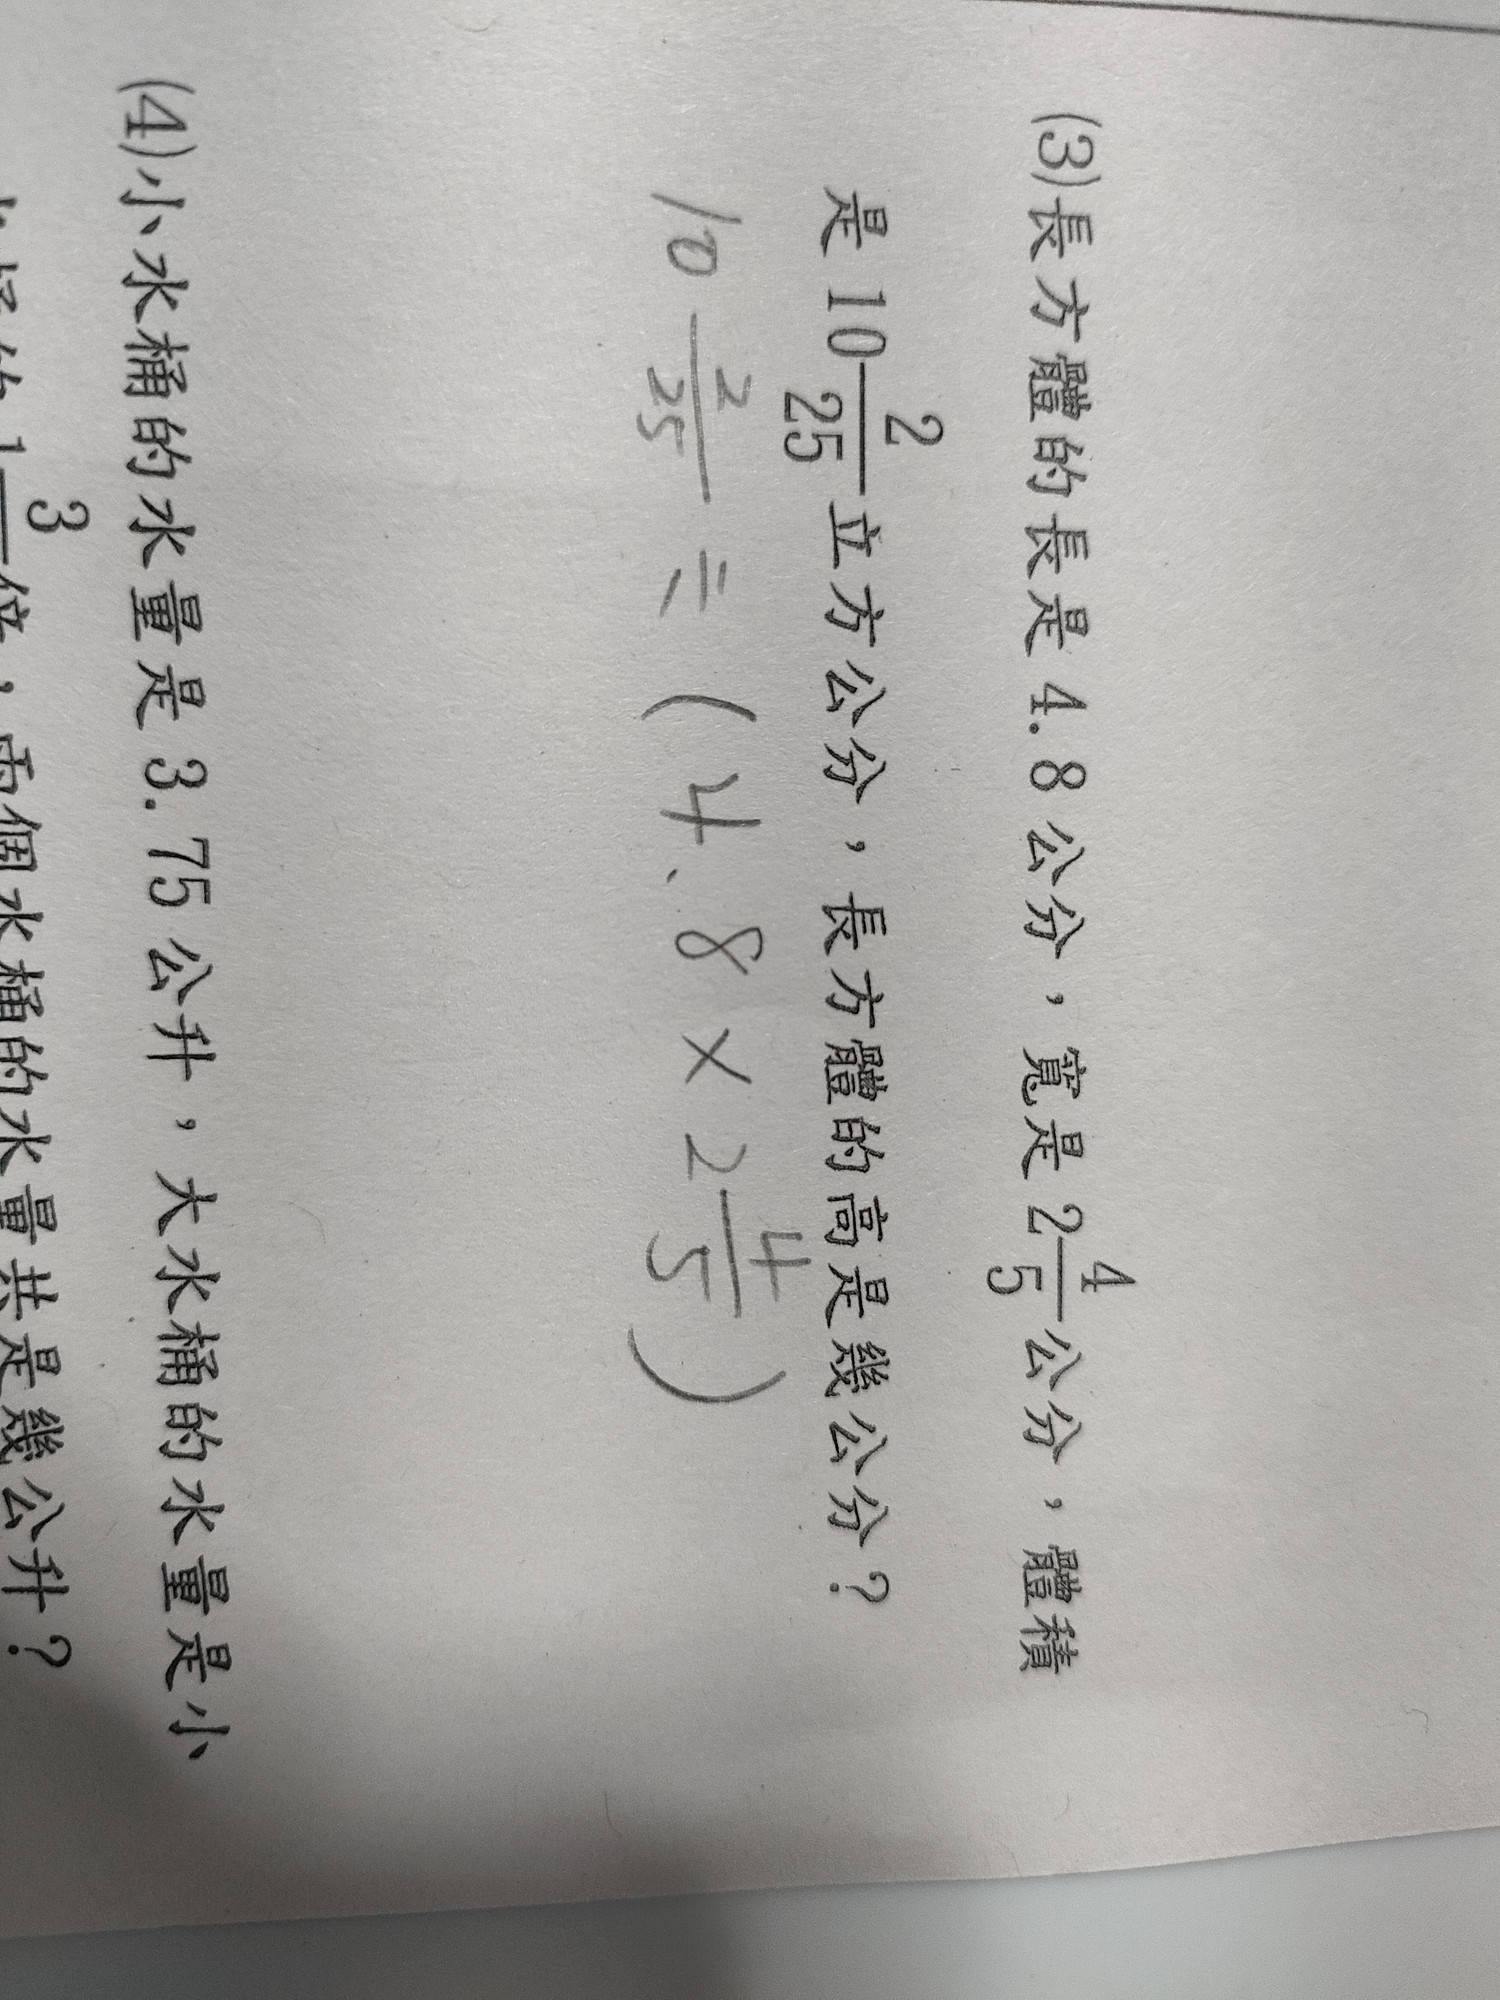 (3)長方體的長是4.8公分，寬是2 4/5公分，體積
是10 2/25立方公分，長方體的高是幾公分？
10 2/25 = (4.8 × 2 4/5)
(4)小水桶的水量是3.75公升，大水桶的水量是小
倍，兩個水桶的水量共是幾公升？